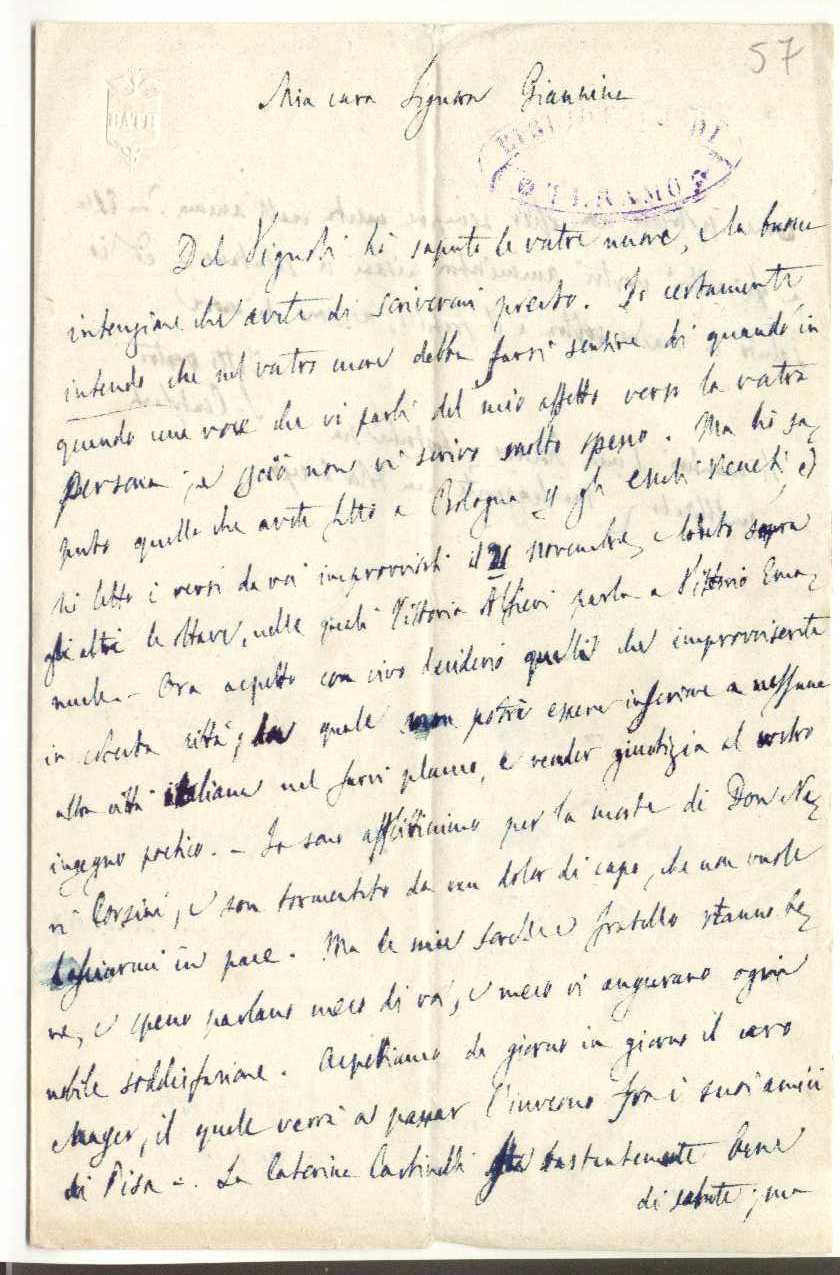 57
BATH
Mia cara Signora Giannina
BIBLIOTECA DI
TERAMO
Del Vignoli ho saputo le vostre nuove, e la buona
intenzione che avete di scrivermi presto. Io certamente
intendo che nel vostro cuore debba farsi sentire di quando in
quando una voce che vi parli del mio affetto verso la vostra
persona; e perciò non vi scrivo molto spesso. Ma ho sa=
puto quello che avete fatto a Bologna gli esuli Veneti, ed
ho letto i versi da voi improvvisati il 21 novembre, e lodato sopra
gli altri le ottave, nelle quali Vittorio Alfieri parla a Vittorio Ema=
nuele. – Ora aspetto con vivo desiderio quelli che improvviserete
in codesta città, la quale non potrà essere inferiore a nessuna
altra città italiana nel farvi plauso, e render giustizia al vostro
ingegno poetico. – Io sono afflittissimo per la morte di Don Ne=
ri Corsini, e son tormentato da un dolor di capo, che non vuole
lasciarmi in pace. Ma le mie sorelle e fratello stanno be=
ne, e spesso parlano meco di voi, e meco vi augurano ogni
nobile soddisfazione. Aspettiamo da giorno in giorno il caro
Mayer, il quale verrà a passar l'inverno fra i suoi amici
di Pisa –. La Caterina sta bastantemente bene
di salute; ma